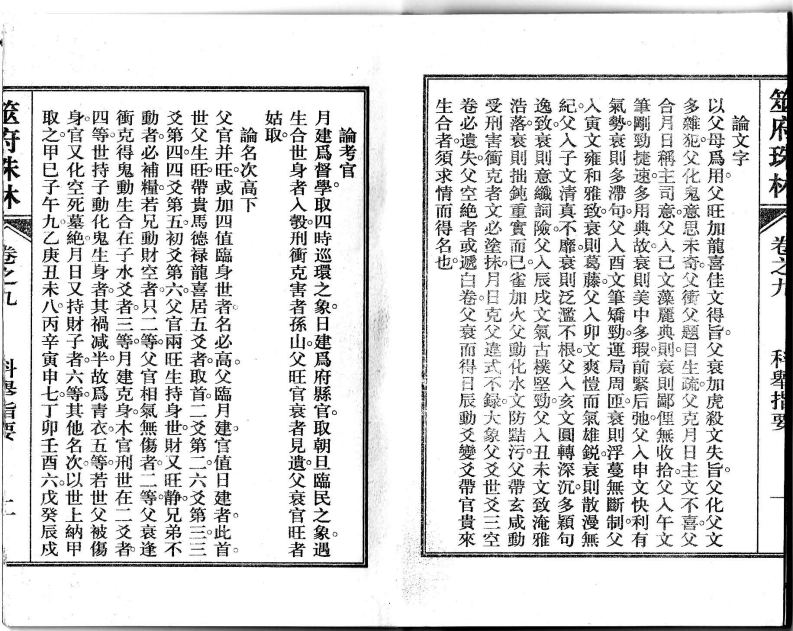 筮府珠林
卷之九
科舉指要
論文字
以父母爲用父旺加龍喜佳文得旨。父衰加虎殺文失旨。父化父文
多雜犯。父化鬼意思未奇。父衝父題目生疏。父克月日主文不喜。父
合月日稱主司意。父入巳文藻麗典則。衰則鄙俚無收拾。父入午文
筆剛勁捷速多用典故。衰則美中多瑕。前緊后弛。父入申文快利有
氣勢。衰則多滯句。父入酉文筆矯勁運局周匝。衰則浮蔓無斷制。父
入寅文雍和雅致。衰則葛藤。父入卯文爽愷而氣雄銳。衰則散漫無
紀。父入子文清真不靡。衰則泛濫不根。父入亥文圓轉深沉多穎句
逸致。衰則意纖詞險。父入辰戌文氣古樸堅勁。父入丑未文致淹雅
浩落。衰則拙鈍重實而已。雀加火父動化水文防黠污。父帶玄咸動
受刑害衝克者文必塗抹。月日克父違式不録。大象父爻世爻三空
卷必遺失。父空絕者或遞白卷。父衰而得日辰動爻變爻帶官貴來
生合者。須求情而得名也。
論考官
月建爲督學。取四時巡環之象。日建爲府縣官。取朝旦臨民之象。遇
生合世身者入彀。刑衝克害者孫山。父旺官衰者見遺。父衰官旺者
姑取。
論名次高下
父官并旺。或加四值臨身世者。名必高。父臨月建官值日建者。此首。
世父生旺。帶貴馬德禄龍喜居五爻者取首。二爻第二。六爻第三。三
爻第四。四爻第五。初爻第六。父官兩旺生持身世。財又旺静。兄弟不
動者。必補糧。若兄動財空者。只二等。父官相氣無傷者。二等。父衰逢
衝克得鬼動生合在子水爻者。三等。月建克身。木官刑世在二爻者。
四等。世持子動化鬼生身者。其禍减半。故爲青衣五等。若世父被傷
身官又化空死墓絕月日又持財子者。六等。其他名次以世上納甲
取之。甲巳子午九。乙庚丑未八。丙辛寅申七。丁卯壬酉六。戊癸辰戌
筮府珠林
卷之九
科舉指要